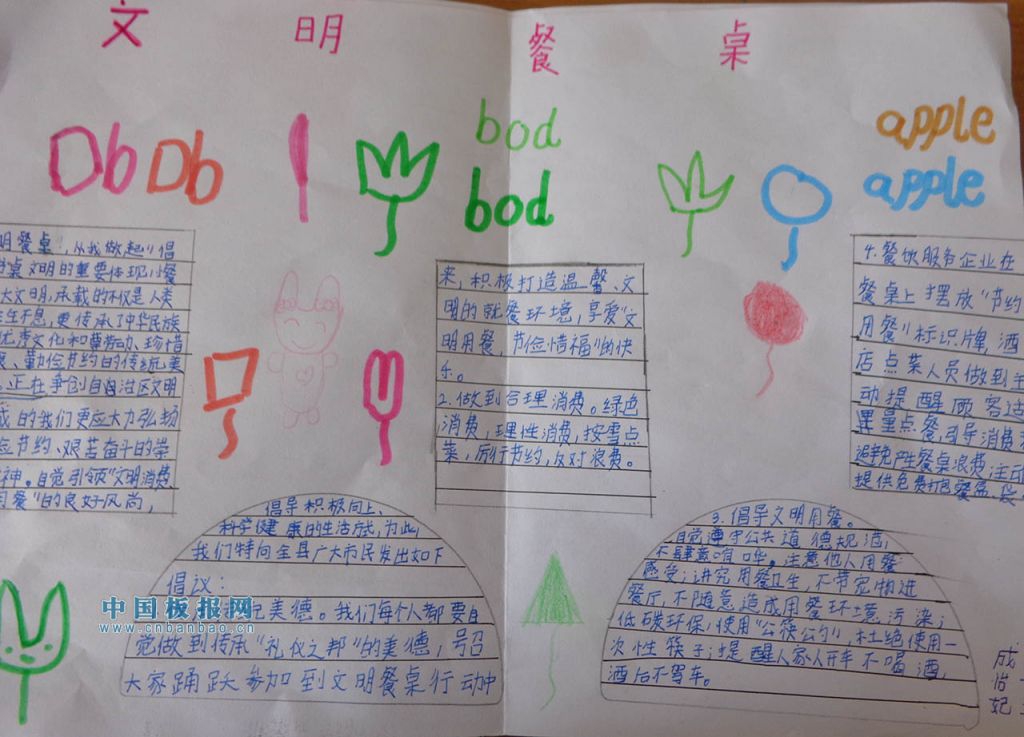 文明餐桌
Db Db
bod
bod
apple
apple
明餐桌”,从我做起”倡
桌文明的重要体现,小餐
大文明,承载的不仅是人类
生生不息,更传承了中华民族
优秀文化和尊劳动、珍惜
、勤俭节约的传统美
。正在争创自治区文明
城的我们更应大力弘扬
俭节约、艰苦奋斗的崇
神。自觉引领“文明消费
用餐”的良好风尚,
倡导积极向上、
科学健康的生活方式,为此,
我们特向全县广大市民发出如下
倡议:
美德。我们每个人都要自
觉做到传承“礼仪之邦”的美德,号召
大家踊跃参加到文明餐桌行动中
来,积极打造温馨、文
明的就餐环境,享爱“文
明用餐,节俭惜福”的快
乐。
2.做到合理消费。绿色
消费,理性消费,按需点
菜,厉行节约,反对浪费。
3.倡导文明用餐。
自觉遵守公共道德规范,
不肆意喧哗,注意他人用餐
感受;讲究用餐卫生,不带宠物进
餐厅,不随意造成用餐环境污染;
低碳环保,使用“公筷公勺”,杜绝使用一
次性筷子;提醒人家人开车不喝酒,
酒后不驾车。
4.餐饮服务企业在
餐桌上摆放“节约
用餐”标识牌,酒
店点菜人员做到主
动提醒顾客适
量点餐,引导消费
避免产生餐桌浪费;主动
提供免费打包餐盒、袋
中国板报网
www.cnbanbao.cn
成
妃